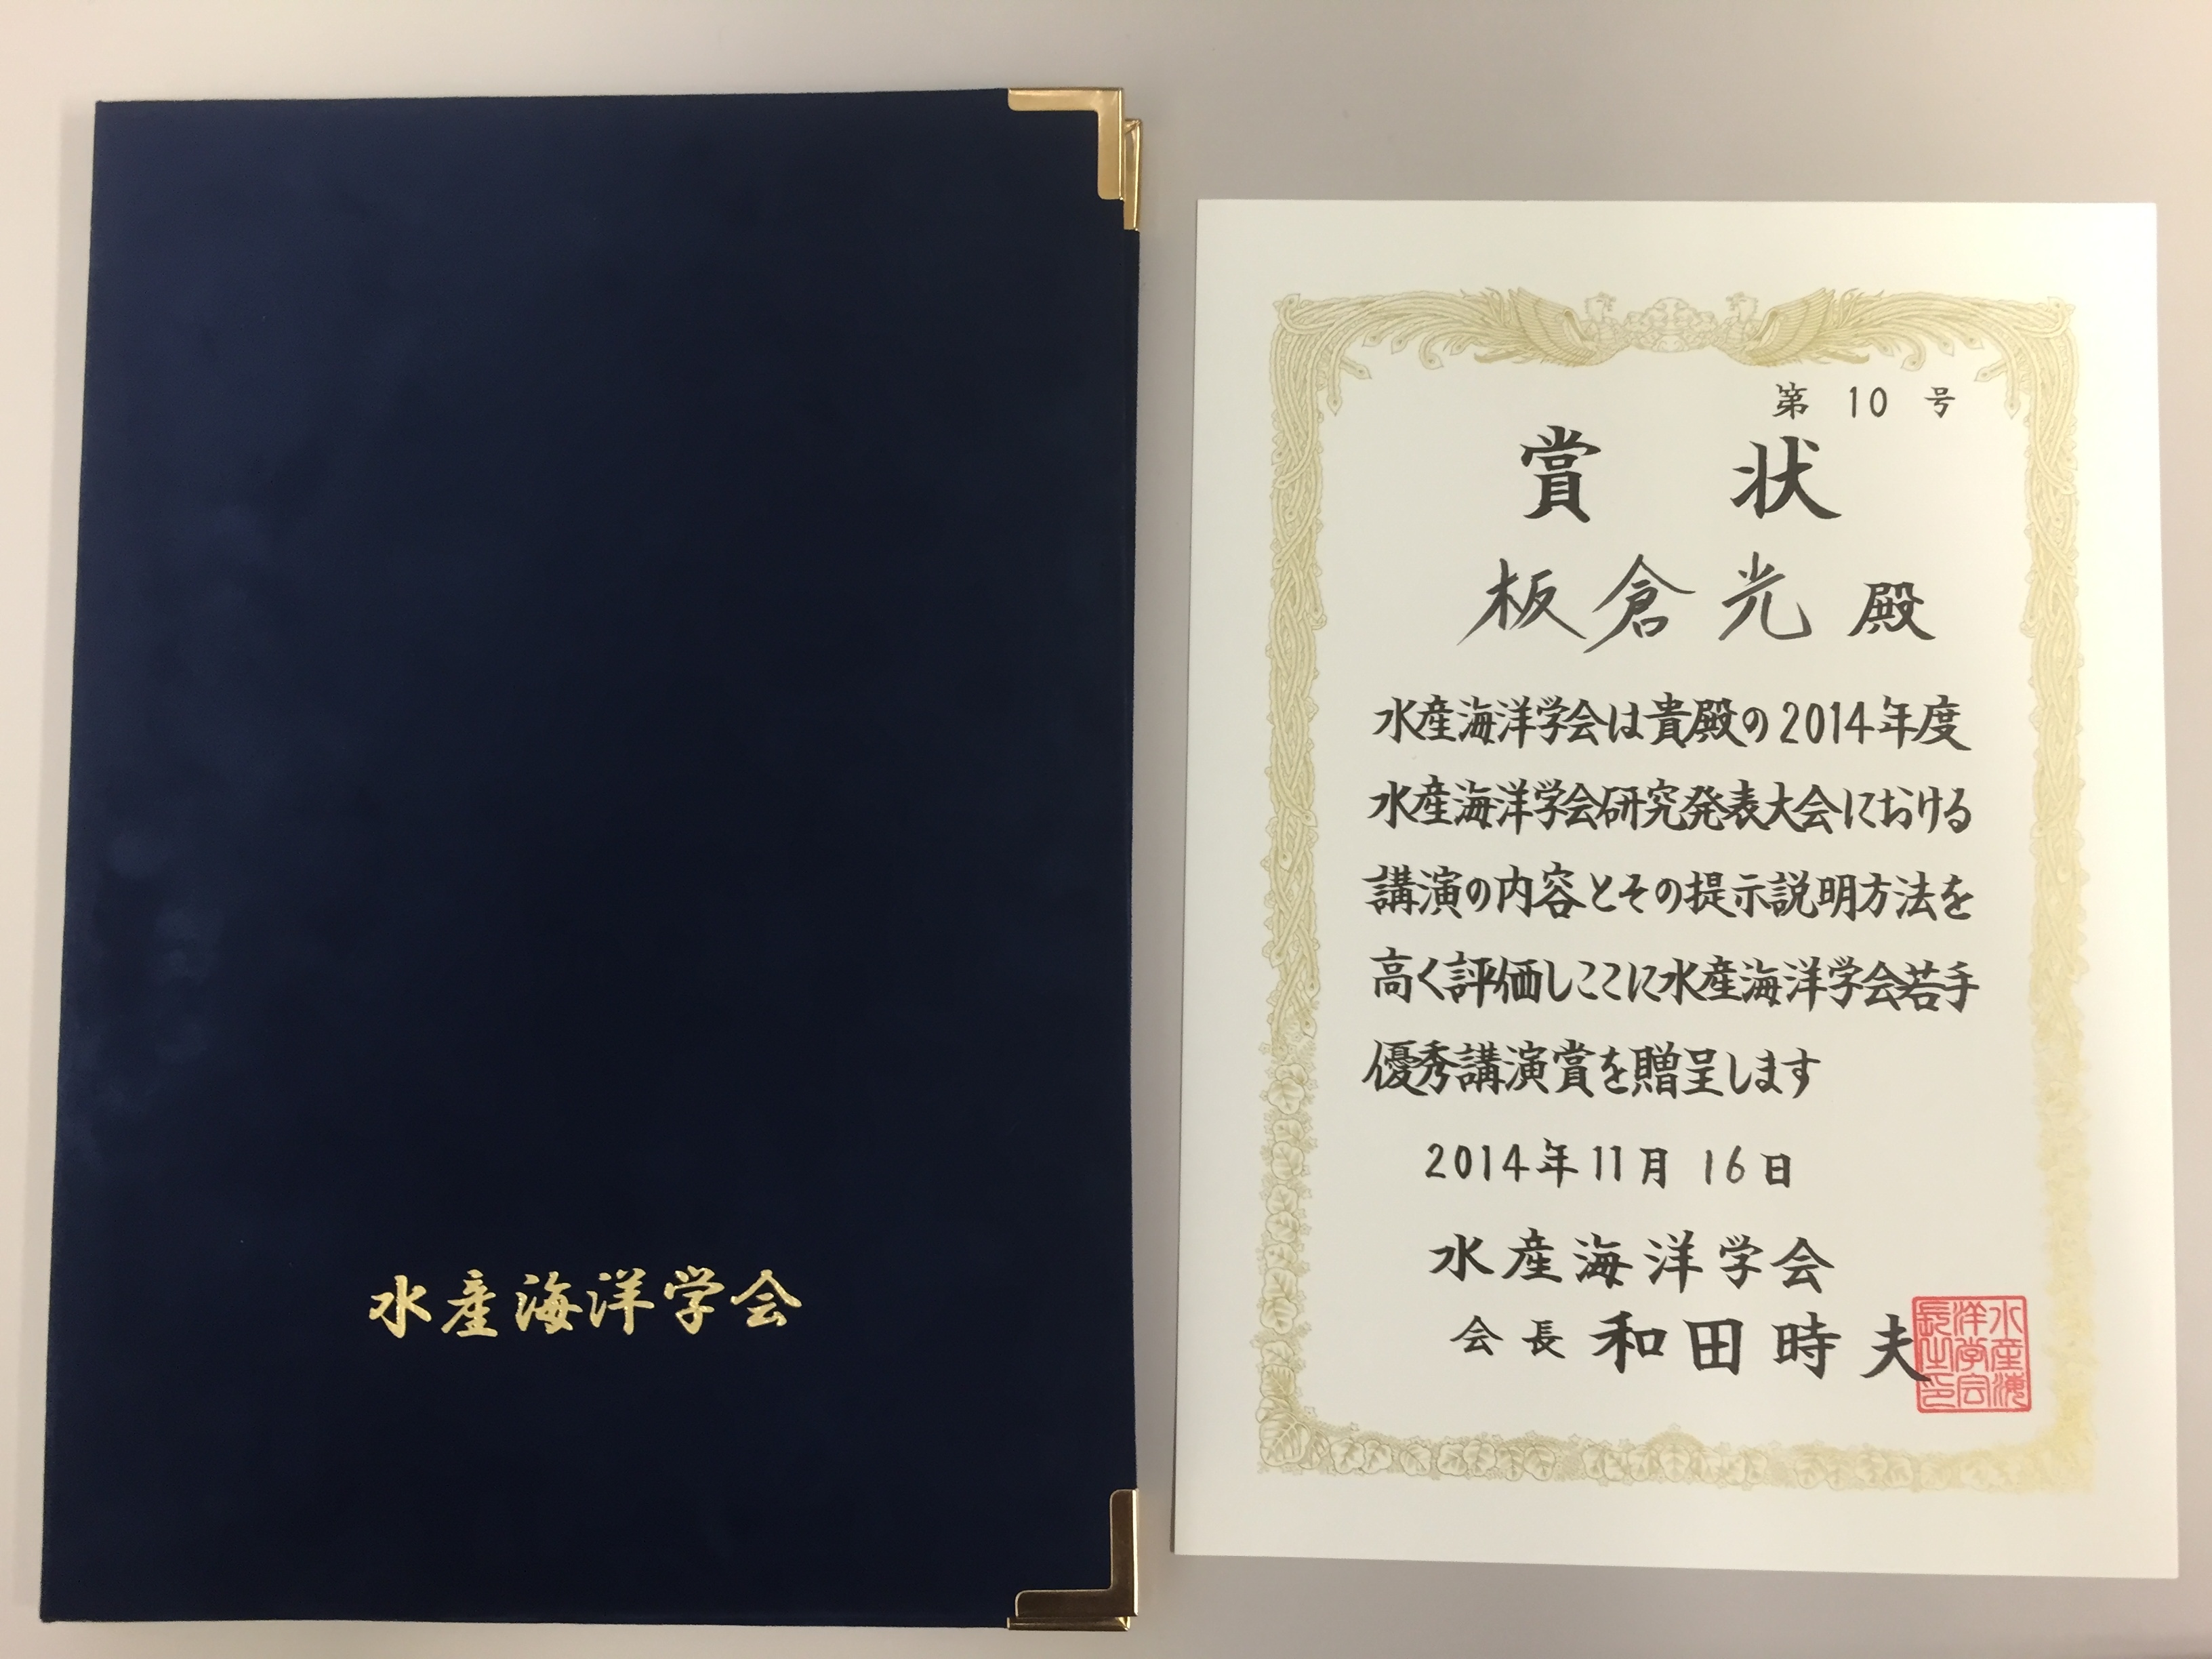 水産海洋学会
第 10 号
賞 状
板倉光 殿
水産海洋学会は貴殿の2014年度
水産海洋学会研究発表大会における
講演の内容とその提示説明方法を
高く評価しここに水産海洋学会若手
優秀講演賞を贈呈します
2014年11月 16日
水産海洋学会
会長 和田時夫
水産海洋学会長之印